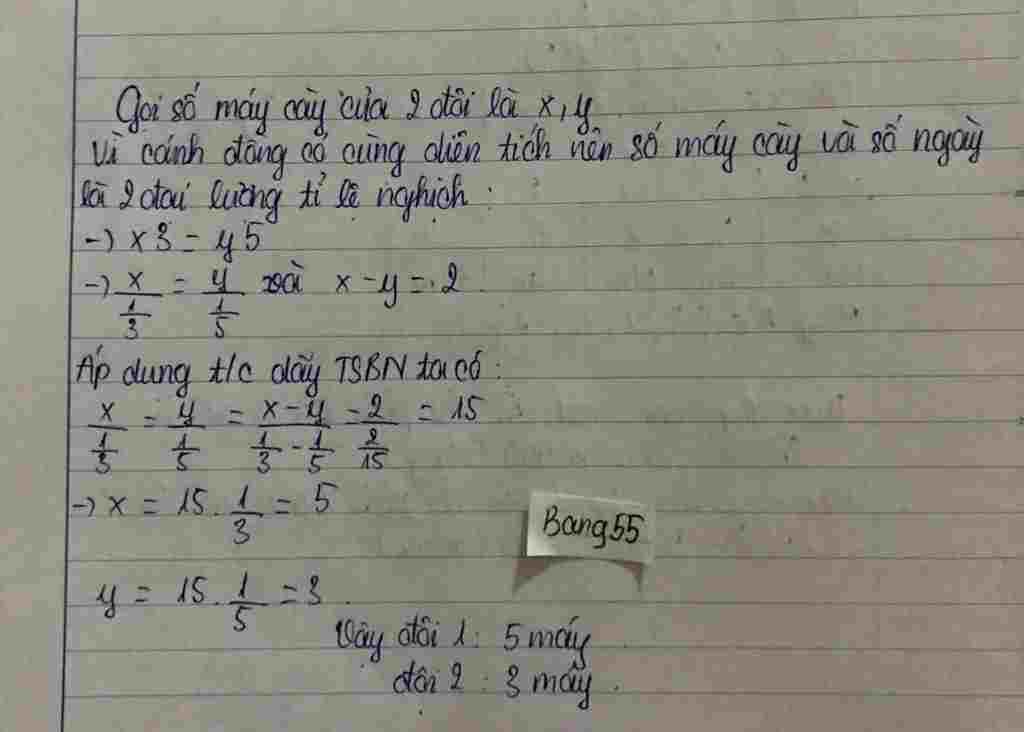 Gọi số máy cày của 2 đội là x, y
Vì cánh đồng có cùng diện tích nên số máy cày và số ngày
là 2 đại lượng tỉ lệ nghịch :
-) x3 = y5
-) x/(1/3) = y/(1/5) và x - y = 2
Áp dụng t/c dãy TSBN ta có :
x/(1/3) = y/(1/5) = (x - y)/(1/3 - 1/5) = 2/(2/15) = 15
-) x = 15 . 1/3 = 5
Bang55
y = 15 . 1/5 = 3
Vậy đội 1 : 5 máy
đội 2 : 3 máy .